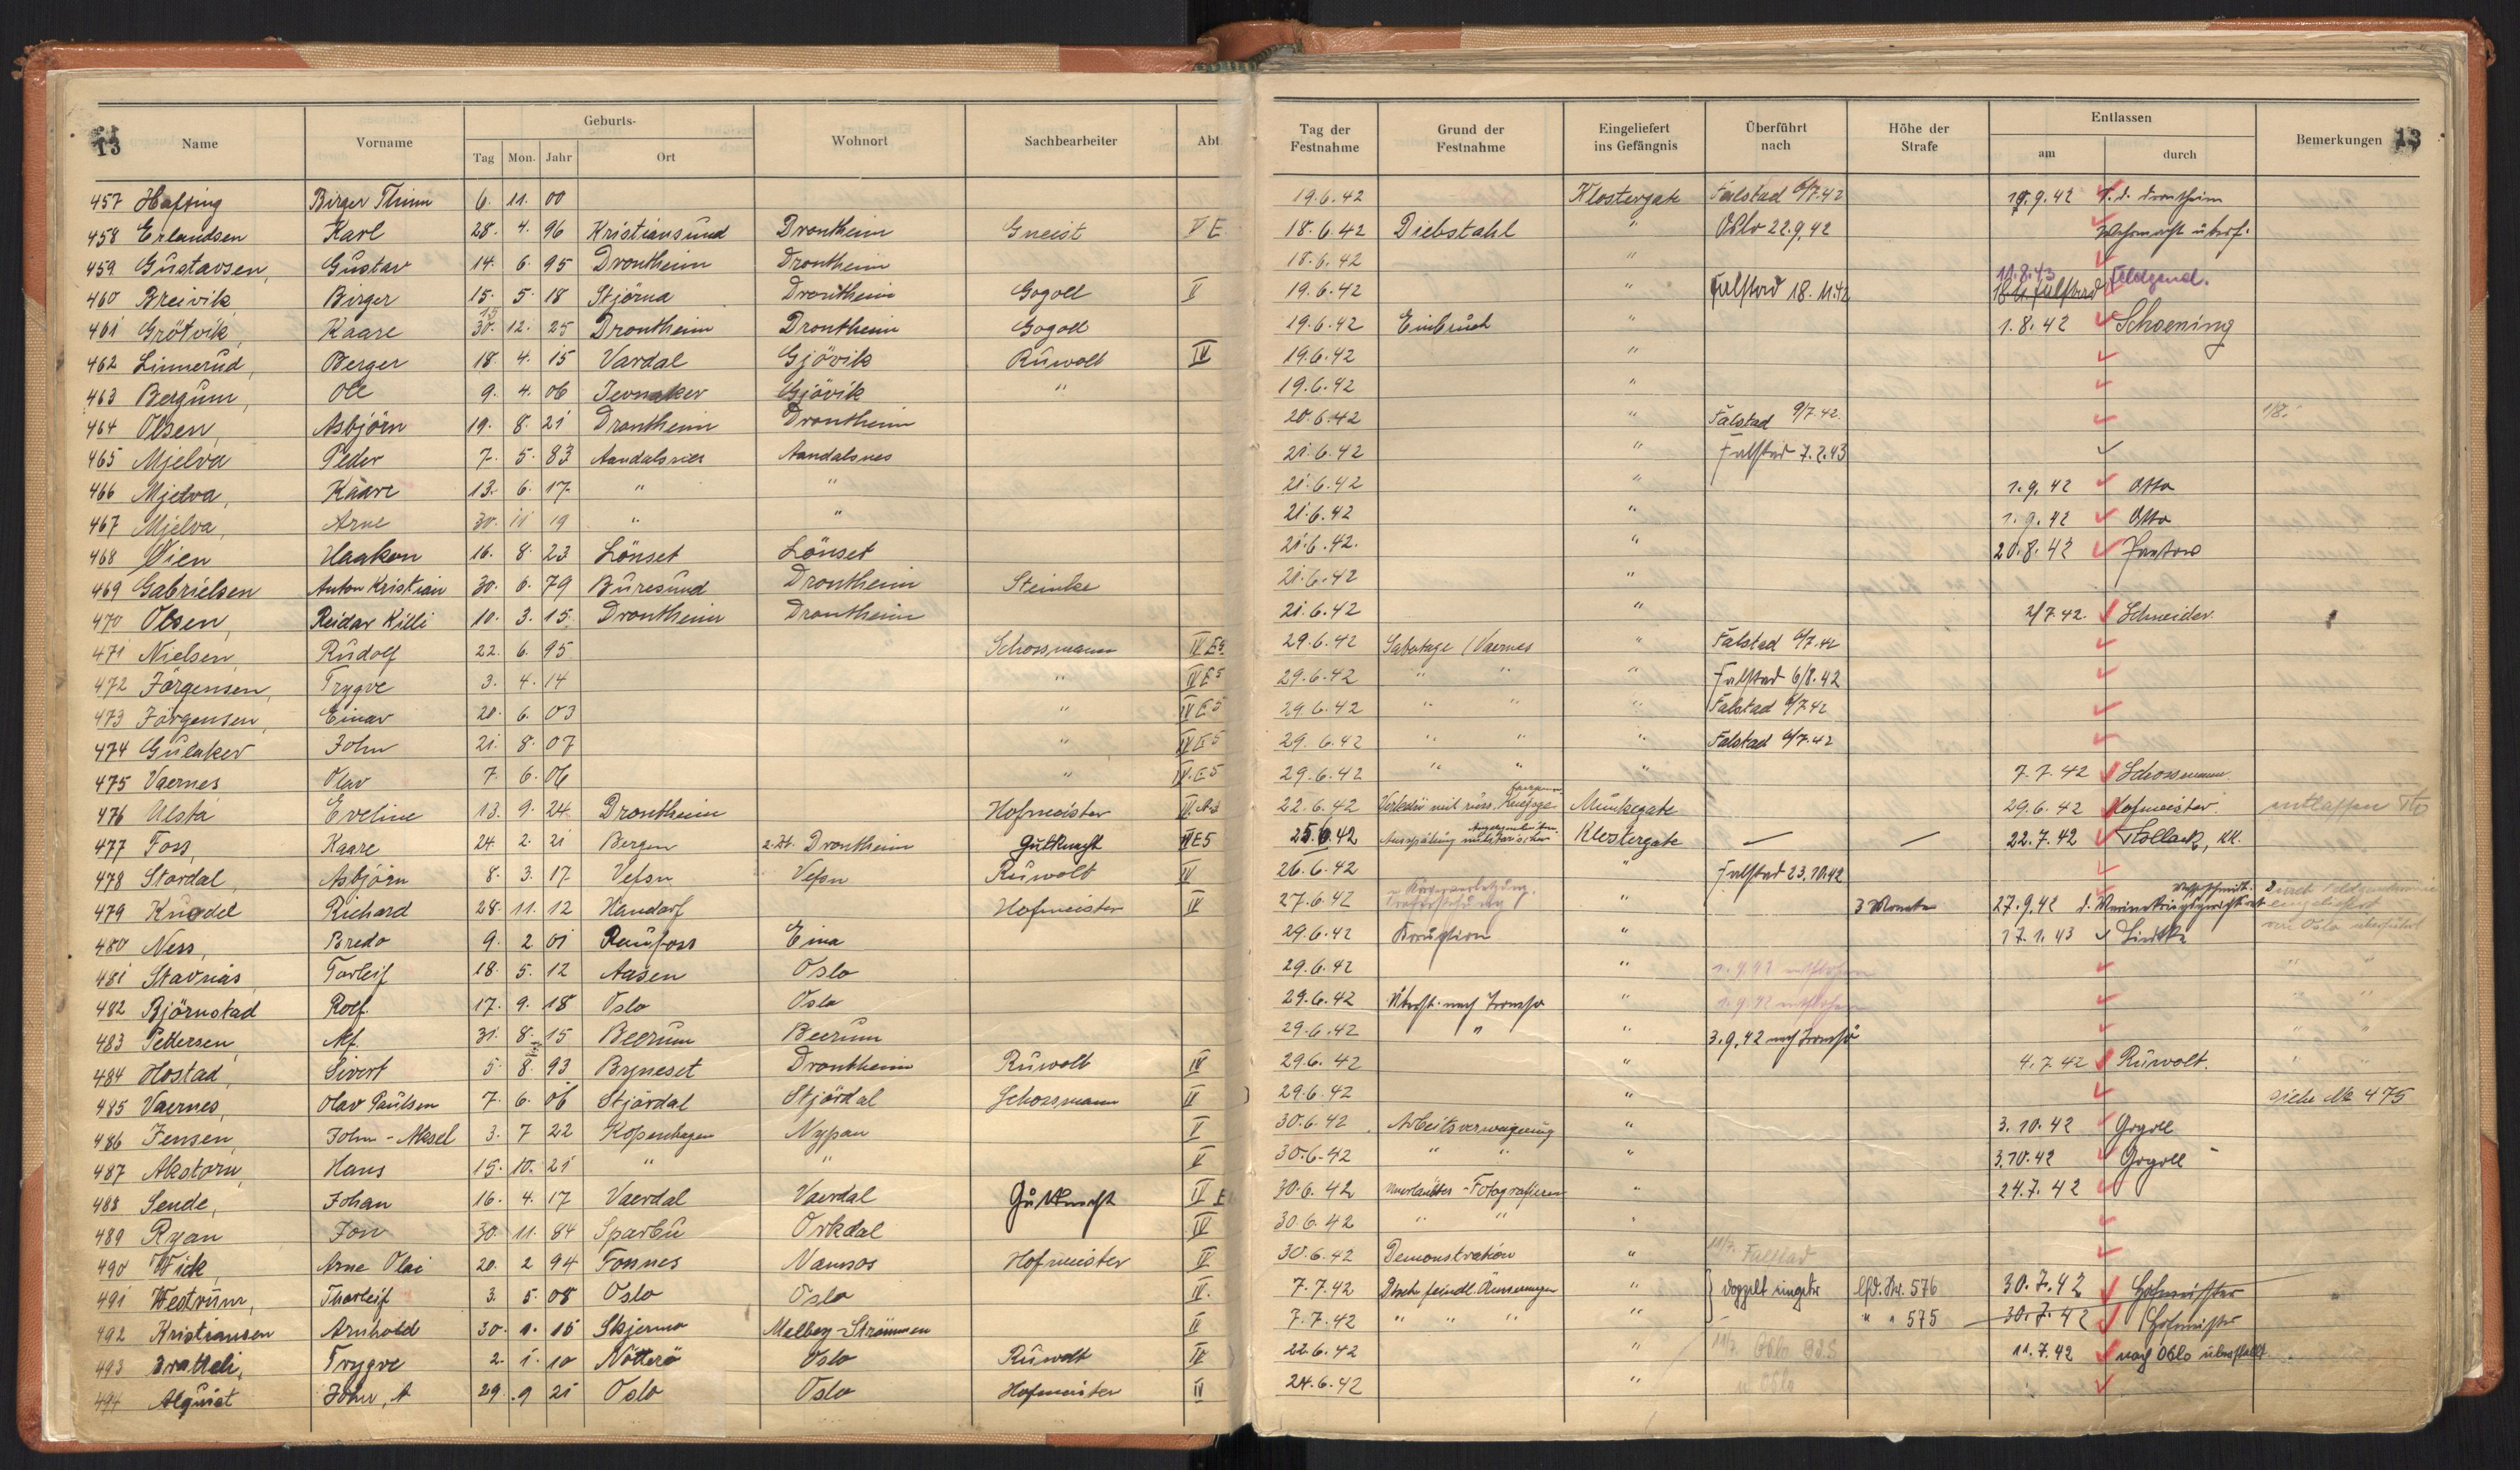 13 Name Vorname Geburts- Wohnort Sachbearbeiter Abt Tag der Festnahme Grund der Festnahme Eingeliefert ins Gefängnis Überführt nach Höhe der Strafe Entlassen Bemerkungen 13
Tag Mon. Jahr Ort am durch
457 Hafting Birger Thinn 6. 11. 00 19.6.42 Klostergate Falstad 6/7.42 19.9.42
458 Erlandsen Karl 28. 4. 96 Kristiansund Drontheim Gneist V E 18.6.42 Diebstahl " Oslo 22.9.42 Wehrmacht überf.
459 Gustavsen, Gustav 14. 6. 95 Drontheim Drontheim 18.6.42 "
460 Breivik Birger 15. 5. 18 Stjörna Drontheim Gogoll V 19.6.42 " Falstad 18.11.42 11.8.43 Feldgend.
461 Grötvik, Kaare 30. 12. 25 Drontheim Drontheim Gogoll 19.6.42 Einbruch " 1.8.42 Schoening
462 Linnerud, Berger 18. 4. 15 Vardal Gjövik Ruwolt IV 19.6.42 "
463 Bergum, Ole 9. 4. 06 Jevnaker Gjövik " 19.6.42 "
464 Olsen, Asbjörn 19. 8. 21 Drontheim Drontheim 20.6.42 " Falstad 9/7.42 1/8.
465 Mjelva Peder 7. 5. 83 Aandalsnes Aandalsnes 21.6.42 " Falstad 7.2.43
466 Mjelva, Kaare 13. 6. 17 " " 21.6.42 " 1.9.42 Otto
467 Mjelva, Arne 30. 11 19 " " 21.6.42 " 1.9.42 Otto
468 Vien Haakon 16. 8. 23 Lönset Lönset 21.6.42. " 20.8.42
469 Gabrielsen Anton Kristian 30. 6. 79 Buresund Drontheim Steinke 21.6.42 "
470 Olsen, Reidar Killi 10. 3. 15. Drontheim Drontheim 21.6.42 " 2/7.42. Schneider.
471 Nielsen, Rudolf 22. 6. 95 Schossmann IV E5 29.6.42 Sabotage / Vaernes " Falstad 6/7.42
472 Jörgensen, Trygve 3. 4. 14 " IV E5 29.6.42 " " " Falstad 6/8.42
473 Jörgensen, Einar 20. 6. 03 " IV E5 29.6.42 " " " Falstad 6/7.42
474 Gulaker John 21. 8. 07 " IV E5 29.6.42 " " " Falstad 6/7.42
475 Vaernes Olav 7. 6. 06 " IV.E5 29.6.42 " " " 7.7.42 Schossmann.
476 Ulsta Eveline 13. 9. 24 Drontheim Hofmeister 22.6.42 Verkehr mit russ. Kriegsge Munkegate 29.6.42 Hofmeister entlassen
477 Foss, Kaare 24 2. 21 Bergen z. Zt. Drontheim Gutknecht IV E5 25.6.42 Ausspähung militärischer Klostergate — — 22.7.42 Pollack, KK.
478 Stordal, Asbjörn 8. 3. 17 Vefsn Vefsn Ruwolt IV 26.6.42 " Falstad 23.10.42
479 Knodel Richard 28. 11. 12 Handorf Hofmeister IV 27.6.42 " 3 Monate 27.9.42
480 Ness, Bredo 9. 2 01 Raufoss Eina 29.6.42 Korruption " 17.1.43 von Oslo überführt
481 Stavnäs Torleif 18. 5. 12 Aasen Oslo 29.6.42 " " "
482 Björnstad Rolf 17. 9. 18 Oslo Oslo 29.6.42 " " "
483 Pettersen, Alf. 31. 8. 15 Beerum Beerum 29.6.42 " " 3.9.42 " "
484 Hostad, Sivert 5 8. 93 Byneset Drontheim Ruwolt IV 29.6.42 " 4.7.42 Ruwolt. " "
485 Vaernes, Olav Paulsen 7. 6. 06 Stjördal Stjördal Schossmann II 29.6.42 " siehe No 475
486 Jensen, John-Aksel 3. 7 22 Kopenhagen Nypan V 30.6.42 Arbeitsverweigerung " 3.10.42 Gogoll
487 Akstorn, Hans 15. 10. 21 " " V 30.6.42 " " " 3.10.42 Gogoll
488 Sende, Johan 16. 4. 17 Vaerdal Vaerdal Gutknecht IV E 30.6.42 Unerlaubtes-Fotografieren " 24.7.42
489 Ryan Jon 30. 11. 84 Sparbu Orkdal IV 30.6.42 " " "
490 Wick, Arne Olai 20. 2 94 Fosnes Namsos Hofmeister IV 30.6.42 Demonstration " 11/7. Falstad
491 Westrum, Thorleif 3. 5. 08 Oslo Oslo IV. 7.7.42 Dtsch. feindl. Äusserungen " } doppelt eingetr lfd. Nr. 576 30.7.42 Hofmeister
492 Kristiansen Arnhold 30. 1. 15 Skjerma IV 7.7.42 " " " " " " 575 30.7.42 Hofmeister
493 Bratteli, Trygve 2. 1. 10 Nötterö Oslo Ruwolt IV 22.6.42 " 11/7. Oslo 11.7.42 nach Oslo überstellt
494 Alquist John, A 29. 9 21 Oslo Oslo Hofmeister IV 24.6.42 " Oslo